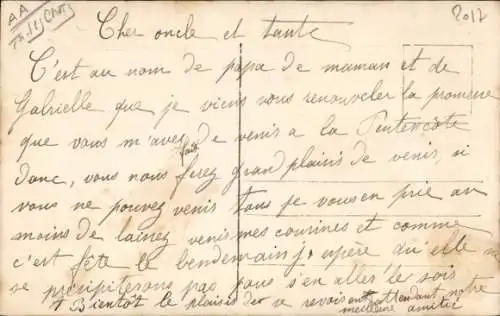 AA
2017
Cher oncle et tante
C'est au nom de papa de maman et de
Gabrielle que je viens vous renouveler la promesse
que vous m'avez fait de venir a la Pentecôte
donc, vous nous ferez grand plaisir de venir, si
vous ne pouvez venir tous je vous en prie au
moins de laissez venir mes cousines et comme
c'est fête le lendemain j'espère qu'elle ne
se précipiterons pas pour s'en aller le soir
A Bientôt le plaisir de se revoir en attendant notre
meilleure amitié